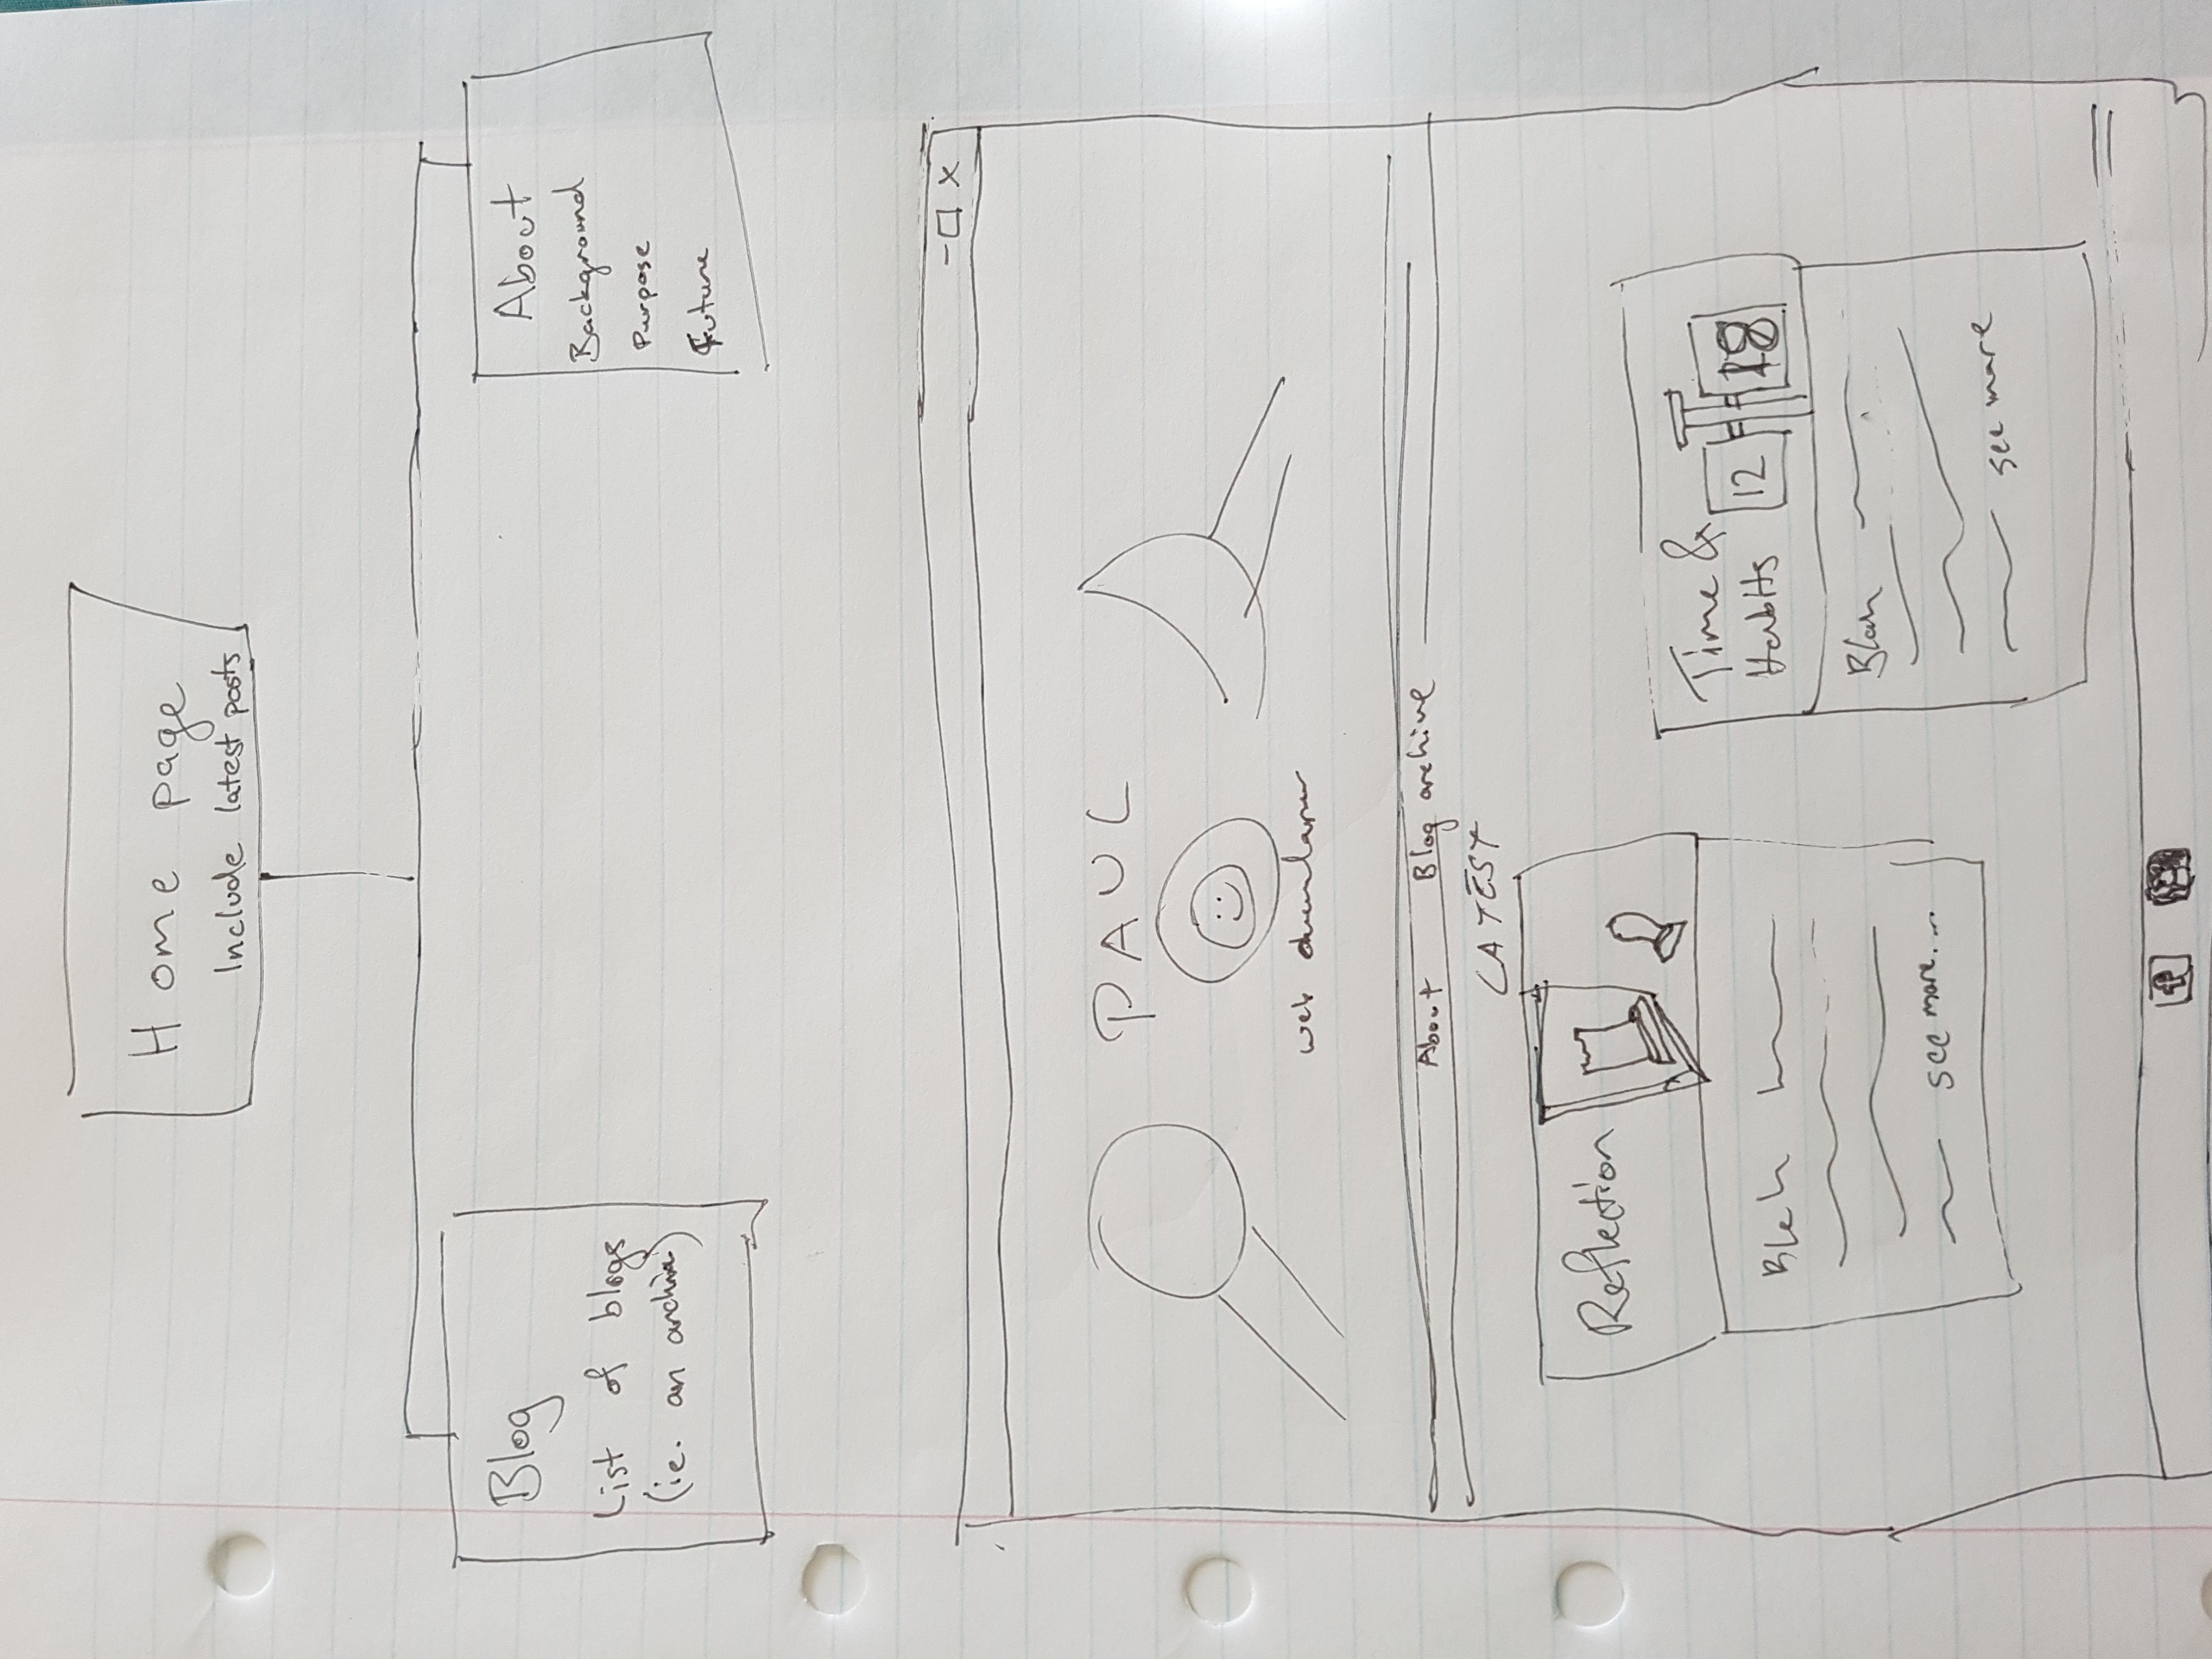 Home page
Include latest posts
Blog
List of blogs
(ie. an archive)
About
Background
Purpose
Future
PAUL
web developer
About Blog archive
LATEST
Reflection
Blah
see more....
Time &
Habits
12 18
Blah
see more
f